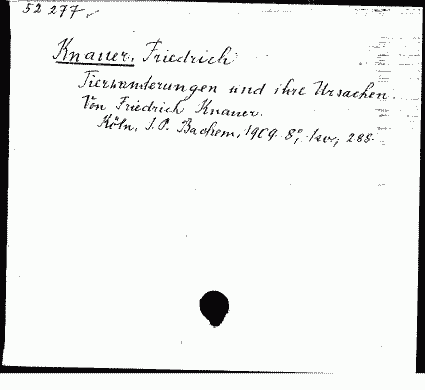 52 277.
Knauer, Friedrich
Tierwanderungen und ihre Ursachen.
Von Friedrich Knauer.
Köln, J. P. Bachem, 1909. 8°, 288.